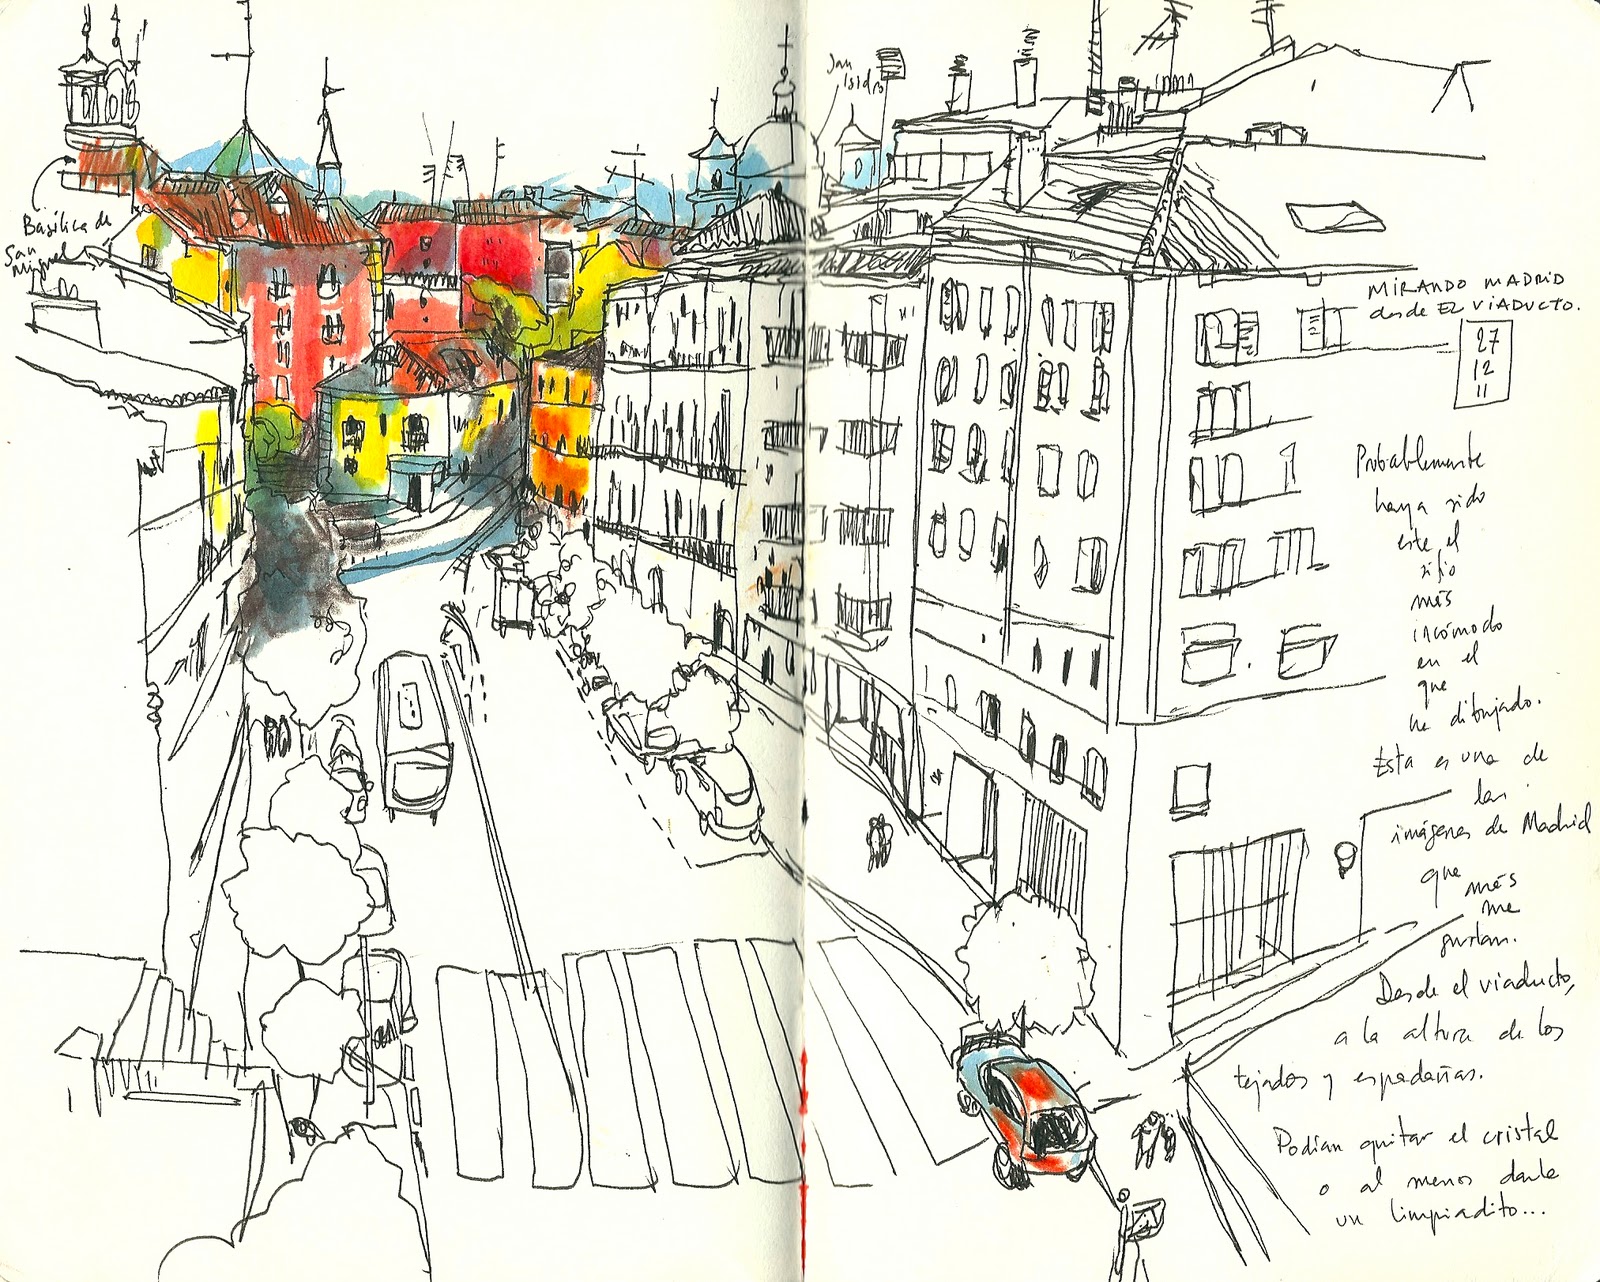 Basílica de
San
Miguel
San
Isidro
MIRANDO MADRID
desde EL VIADUCTO.
27
12
11
Probablemente
haya sido
este el
sitio
más
incómodo
en el
que
he dibujado.
Esta es una de
las
imágenes de Madrid
que
más
me
gustan.
Desde el viaducto,
a la altura de los
tejados y espadañas.
Podían quitar el cristal
o al menos darle
un limpiadito...